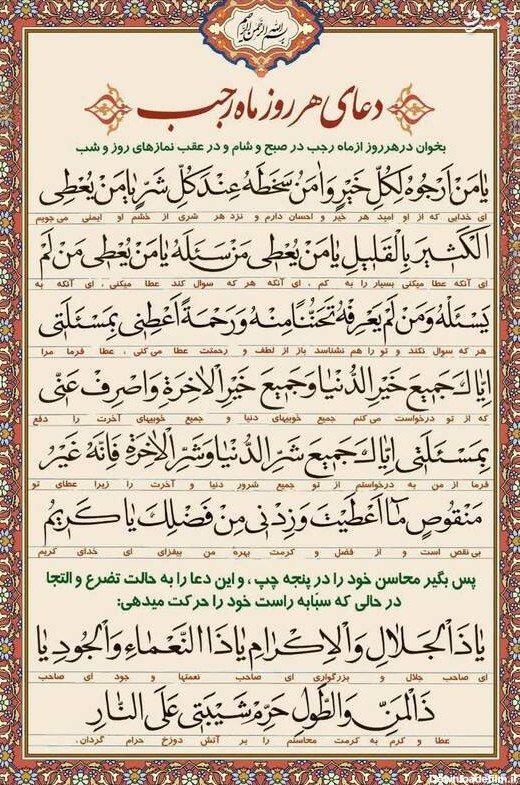 بسم الله الرحمن الرحیم
مشرق
mashreghnews.ir
دعای هر روز ماه رجب
بخوان در هر روز از ماه رجب در صبح و شام و در عقب نمازهای روز و شب
یٰا مَنْ اَرْجُوهُ لِکُلِّ خَیْرٍ وَ اٰمَنُ سَخَطَهُ عِنْدَ کُلِّ شَرٍّ یٰا مَنْ یُعْطِی
ای خدایی که از او امید هر خیر و احسان دارم و نزد هر شری از خشم او ایمنی می جویم
الْکَثیٖرَ بِالْقَلیٖلِ یٰا مَنْ یُعْطیٖ مَنْ سَئَلَهُ یٰا مَنْ یُعْطیٖ مَنْ لَمْ
ای آنکه عطا میکنی بسیار را به کم ، ای آنکه هر که سوال کند عطا میکنی ، ای آنکه به
یَسْئَلْهُ وَ مَنْ لَمْ یَعْرِفْهُ تَحَنُّنًا مِنْهُ وَ رَحْمَةً اَعْطِنیٖ بِمَسْئَلَتیٖ
هر که سوال نکند و تو را هم نشناسد باز از لطف و رحمتت عطا می کنی ، عطا فرما مرا
اِیّٰاکَ جَمیٖعَ خَیْرِ الدُّنْیٰا وَ جَمیٖعَ خَیْرِ الْاٰخِرَةِ وَ اصْرِفْ عَنّیٖ
که از تو درخواست می کنم جمیع خوبیهای دنیا و جمیع خوبیهای آخرت را دفع
بِمَسْئَلَتیٖ اِیّٰاکَ جَمیٖعَ شَرِّ الدُّنْیٰا وَ شَرِّ الْاٰخِرَةِ فَاِنَّهُ غَیْرُ
فرما از من به درخواستم از تو جمیع شرور دنیا و آخرت را زیرا عطای تو
مَنْقُوصٍ مٰا اَعْطَیْتَ وَ زِدْنیٖ مِنْ فَضْلِکَ یٰا کَریٖمُ
بی نقص است و از فضل و کرمت بهره من بیفزای ای خدای کریم
پس بگیر محاسن خود را در پنجه چپ ، و این دعا را به حالت تضرع و التجا
در حالی که سبّابه راست خود را حرکت میدهی:
یٰا ذَا الْجَلٰالِ وَ الْاِکْرٰامِ یٰا ذَا النَّعْمٰاءِ وَ الْجُودِ یٰا
ای صاحب جلال و بزرگواری ای صاحب نعمتها و جود ای صاحب
ذَا الْمَنِّ وَ الطَّوْلِ حَرِّمْ شَیْبَتیٖ عَلَی النّٰارِ
عطا و کرم به کرمت محاسنم را بر آتش دوزخ حرام گردان.